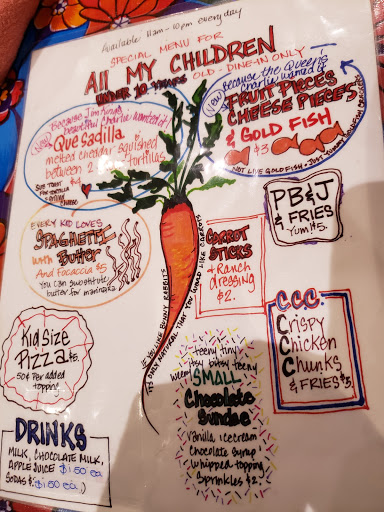 Available 11am - 10pm everyday
SPECIAL MENU FOR
All MY CHILDREN
UNDER 10 YEARS OLD - DINE-IN ONLY
Because
beautiful Charlie wanted it
Quesadilla
melted cheddar squished
between 2 tortillas
$4
New
Because the Queen's
Charlie wanted it
FRUIT PIECES
CHEESE PIECES
& GOLD FISH
$3
NOT LIVE GOLD FISH - JUST YUMMY GOLDFISH CRACKERS
EVERY KID LOVES
SPAGHETTI
with Butter
And Focaccia $5
You can substitute
butter for marinara
CARROT
STICKS
+ Ranch
dressing
$2.
PB&J
& FRIES
Yum! $5.
IF YOU LIKE BUNNY RABBITS
ITS ONLY NATURAL THAT YOU WOULD LIKE CARROTS
Kid Size
Pizza $5.
50¢ Per added
topping
C.C.C.
CRISPY
CHICKEN
CHUNKS
& FRIES $5.
teeny tiny
itsy bitsy teeny
weeny
SMALL
Chocolate
Sundae
vanilla icecream
chocolate syrup
whipped topping
Sprinkles $2.
DRINKS
MILK, CHOCOLATE MILK,
APPLE JUICE $1.50 ea.
SODAS $1.50 ea.